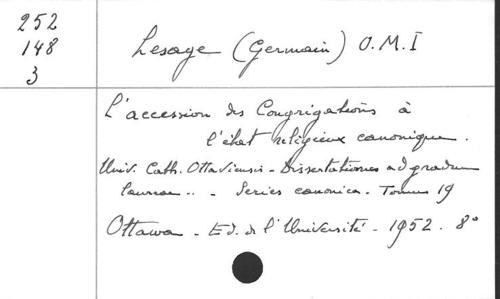 252
148
3
Lesage (Germain) O.M.I
L'accession des Congrégations à
l'état religieux canonique.
Univ. Cath. Ottaviensis - Dissertationes ad gradum
laureae.. - Series canonica - Tomus 19
Ottawa - Ed. de l'Université - 1952. 8°